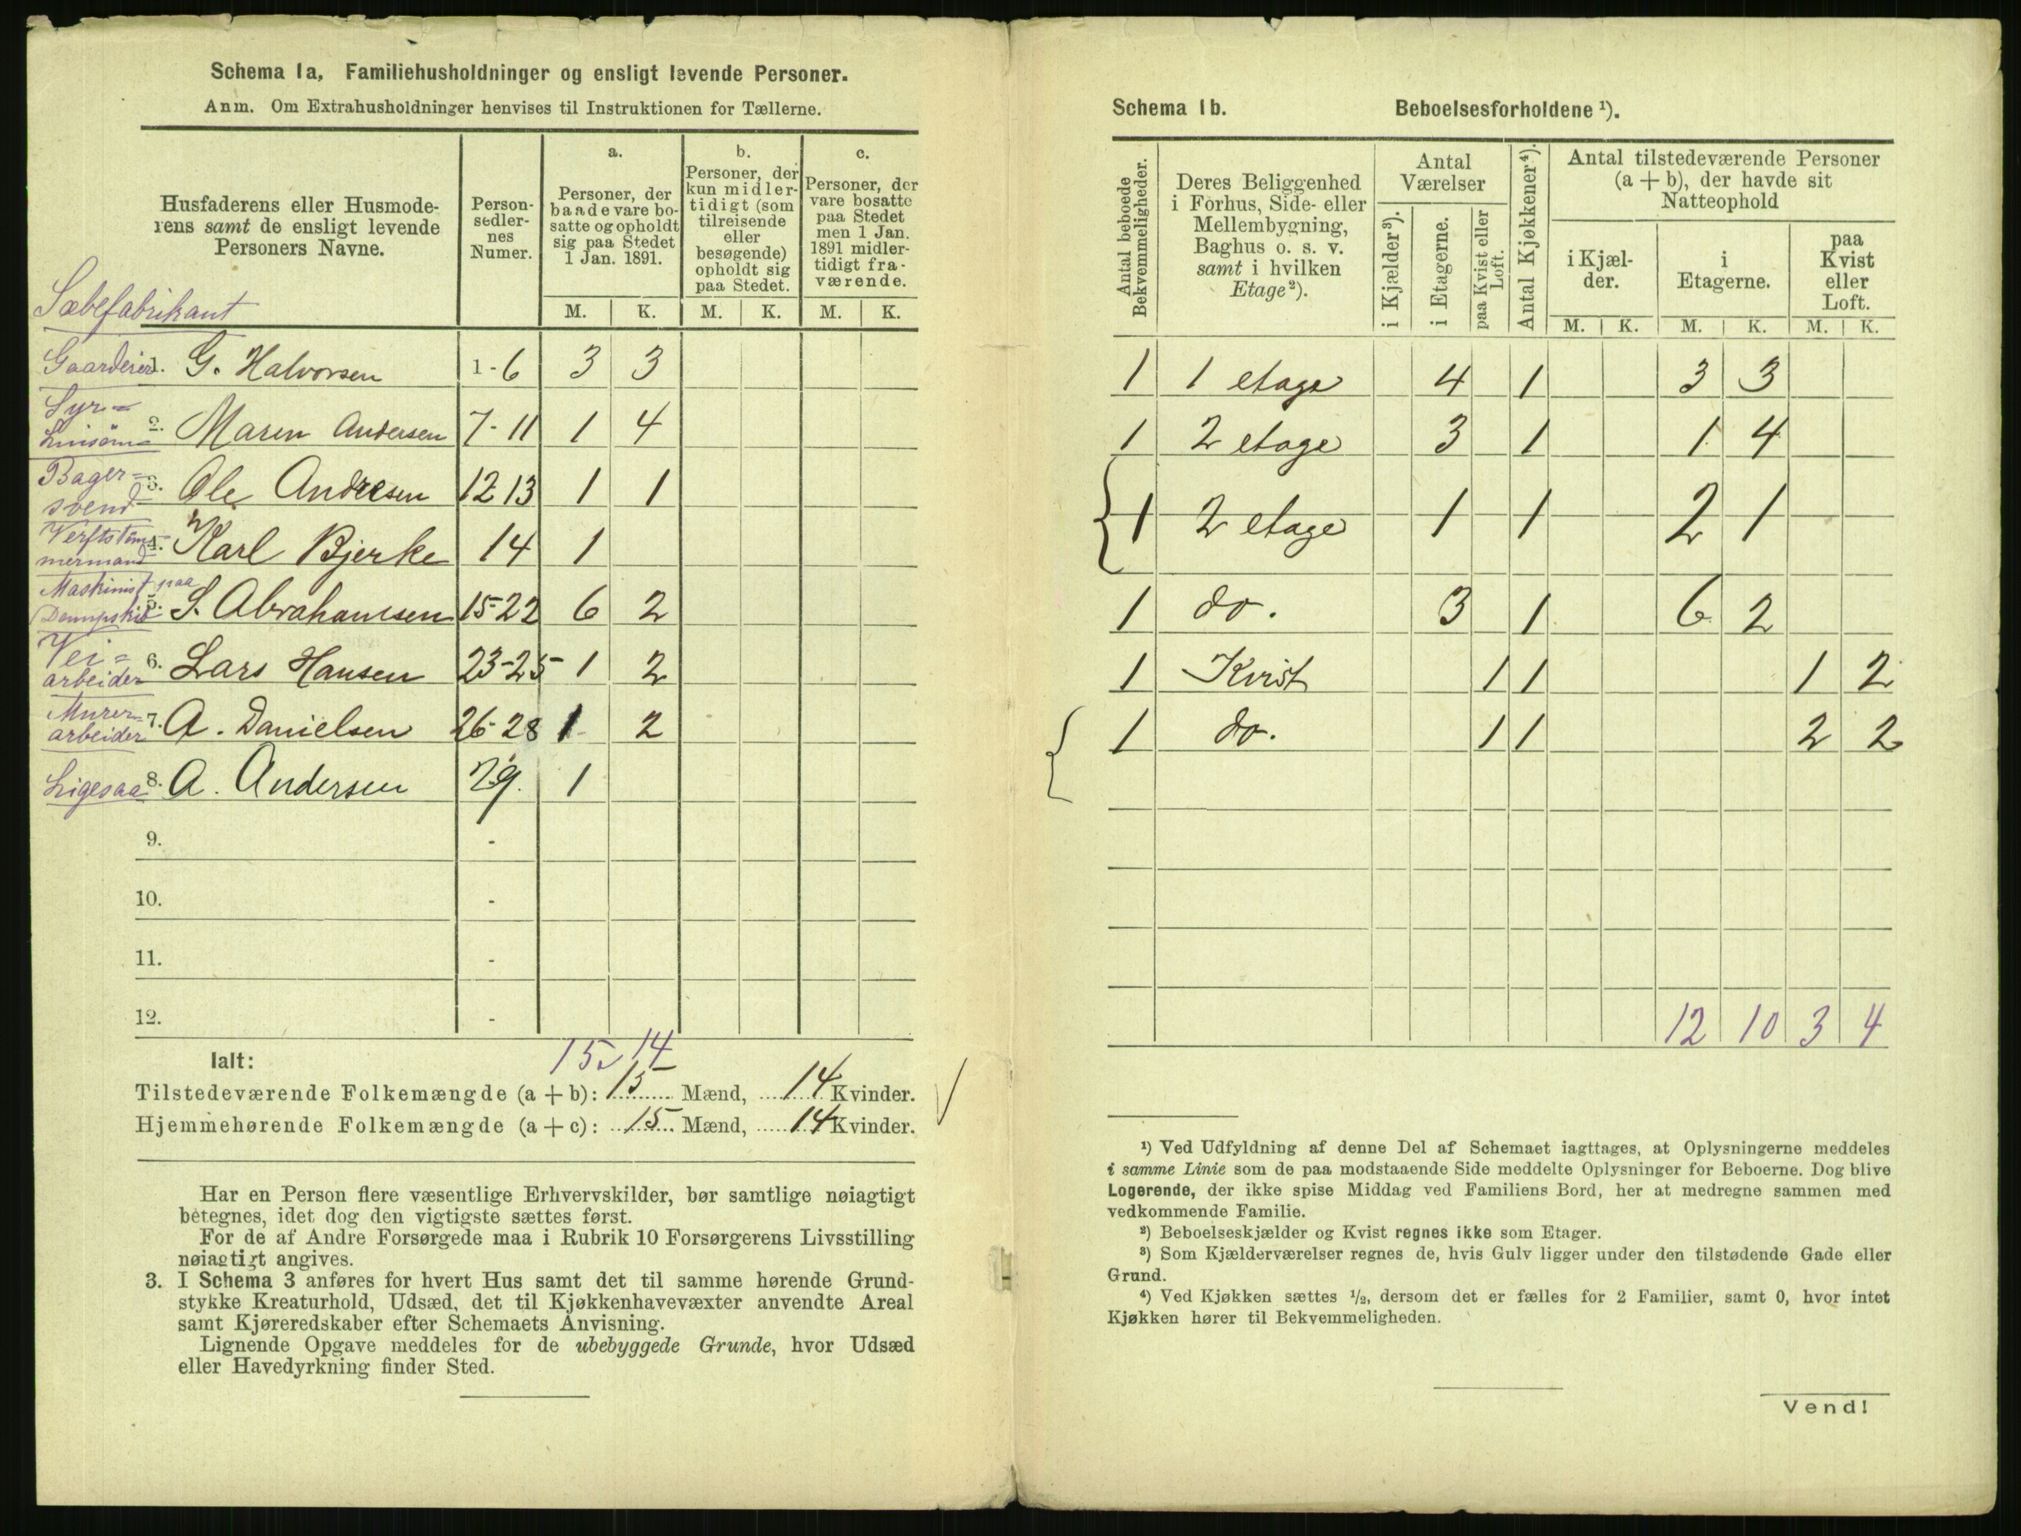 Schema 1a, Familiehusholdninger og ensligt levende Personer.
Anm. Om Extrahusholdninger henvises til Instruktionen for Tællerne.
Husfaderens eller Husmode-
rens samt de ensligt levende
Personers Navne.
Person-
sedler-
nes
Numer.
a.
Personer, der
baade vare bo-
satte og opholdt
sig paa Stedet
1 Jan. 1891.
b.
Personer, der
kun midler-
tidigt (som
tilreisende
eller
besøgende)
opholdt sig
paa Stedet.
c.
Personer, der
vare bosatte
paa Stedet
men 1 Jan.
1891 midler-
tidigt fra-
værende.
M. K. M. K. M. K.
Sæbefabrikant
Gaardeier 1. G. Halvorsen 1-6 3 3
Syr-
2. Maren Andersen 7-11 1 4
Bager-
svend 3. Ole Andresen 12 13 1 1
Verftstøm
mermand 4. Karl Bjerke 14 1
Maskinist paa
Dampskib 5. S. Abrahamsen 15-22 6 2
Vei-
arbeider 6. Lars Hansen 23-25 1 2
Murer-
arbeider 7. A. Danielsen 26-28 1 2
Ligesaa 8. A. Andersen 29. 1
9. -
10. -
11. -
12. -
15 14
Ialt:
Tilstedeværende Folkemængde (a + b): 15 Mænd, 14 Kvinder.
Hjemmehørende Folkemængde (a + c): 15 Mænd, 14 Kvinder.
Har en Person flere væsentlige Erhvervskilder, bør samtlige nøiagtigt
betegnes, idet dog den vigtigste sættes først.
For de af Andre Forsørgede maa i Rubrik 10 Forsørgerens Livsstilling
nøiagtigt angives.
3. I Schema 3 anføres for hvert Hus samt det til samme hørende Grund-
stykke Kreaturhold, Udsæd, det til Kjøkkenhavevæxter anvendte Areal
samt Kjøreredskaber efter Schemaets Anvisning.
Lignende Opgave meddeles for de ubebyggede Grunde, hvor Udsæd
eller Havedyrkning finder Sted.
Schema 1b. Beboelsesforholdene ¹).
Antal beboede
Bekvemmeligheder.
Deres Beliggenhed
i Forhus, Side- eller
Mellembygning,
Baghus o. s. v.
samt i hvilken
Etage²).
Antal
Værelser
i Kjælder³).
i Etagerne.
paa Kvist eller
Loft.
Antal Kjøkkener⁴).
Antal tilstedeværende Personer
(a + b), der havde sit
Natteophold
i Kjæl-
der.
i
Etagerne.
paa
Kvist
eller
Loft.
M. K. M. K. M. K.
1 1 etage 4 1 3 3
1 2 etage 3 1 1 4
1 2 etage 1 1 2 1
1 do. 3 1 6 2
1 Kvist 1 1 1 2
1 do. 1 1 2 2
12 10 3 4
¹) Ved Udfyldning af denne Del af Schemaet iagttages, at Oplysningerne meddeles
i samme Linie som de paa modstaaende Side meddelte Oplysninger for Beboerne. Dog blive
Logerende, der ikke spise Middag ved Familiens Bord, her at medregne sammen med
vedkommende Familie.
²) Beboelseskjælder og Kvist regnes ikke som Etager.
³) Som Kjælderværelser regnes de, hvis Gulv ligger under den tilstødende Gade eller
Grund.
⁴) Ved Kjøkken sættes ½, dersom det er fælles for 2 Familier, samt 0, hvor intet
Kjøkken hører til Bekvemmeligheden.
Vend!